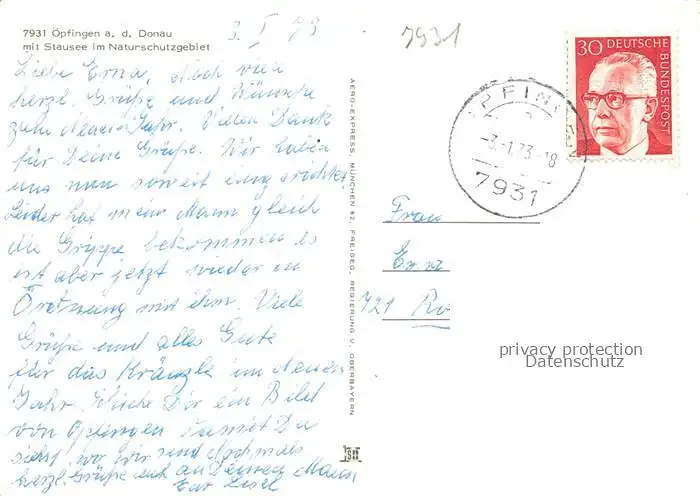 7931 Öpfingen a. d. Donau
mit Stausee im Naturschutzgebiet
3. I 73
7931
30 DEUTSCHE
BUNDESPOST
ÖPFINGEN
-3.-1.73.-18
7931
Liebe Erna, Noch viele
herzl. Grüße und Wünsche
zum Neuen Jahr. Vielen Dank
für Deine Grüße. Wir haben
uns nun soweit eingerichtet.
Leider hat mein Mann gleich
die Grippe bekommen es
ist aber jetzt wieder in
Ordnung mit ihm. Viele
Grüße und alles Gute
für das Kränzle im Neuen
Jahr. Dir ein Bild
von Öpfingen damit Du
siehst, wo wir sind Nochmals
herzl. Grüße auch an Mann
Eure Lisel
AERO-EXPRESS, MÜNCHEN 82, FREIGEG. REGIERUNG V. OBERBAYERN
Frau
Erna
721 Rw
privacy protection
Datenschutz